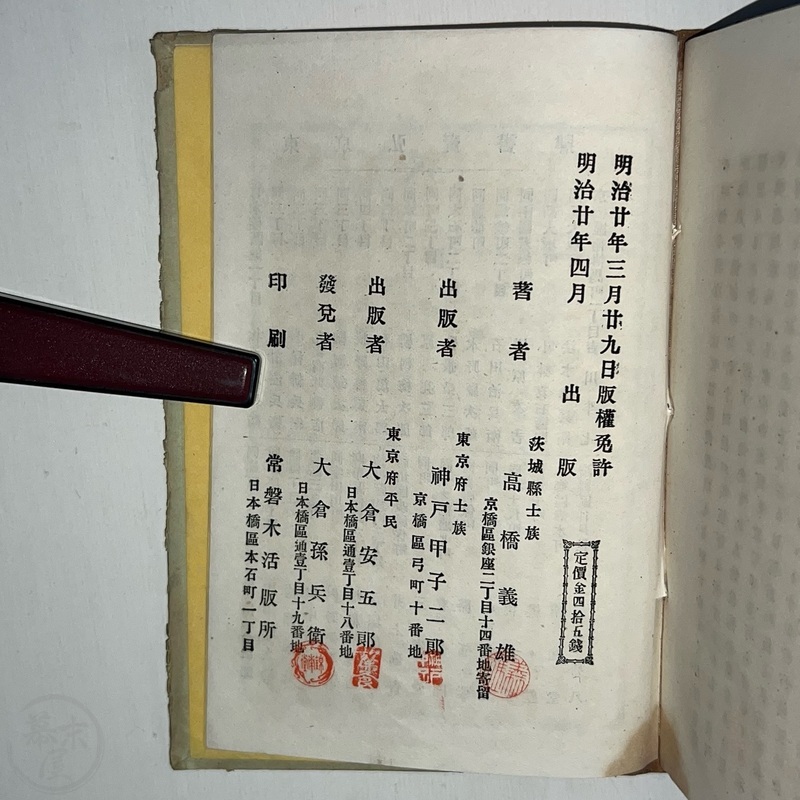 明治廿年三月廿九日版權免許
明治廿年四月 出版
定價金四拾五錢
著者
茨城縣士族
高橋義雄
京橋區銀座二丁目十四番地寄留
出版者
東京府士族
神戸甲子二郎
京橋區弓町十番地
出版者
東京府平民
大倉安五郎
日本橋區通壹丁目十八番地
發兌者
大倉孫兵衛
日本橋區通壹丁目十九番地
印刷
常磐木活版所
日本橋區本石町一丁目
幕末屋